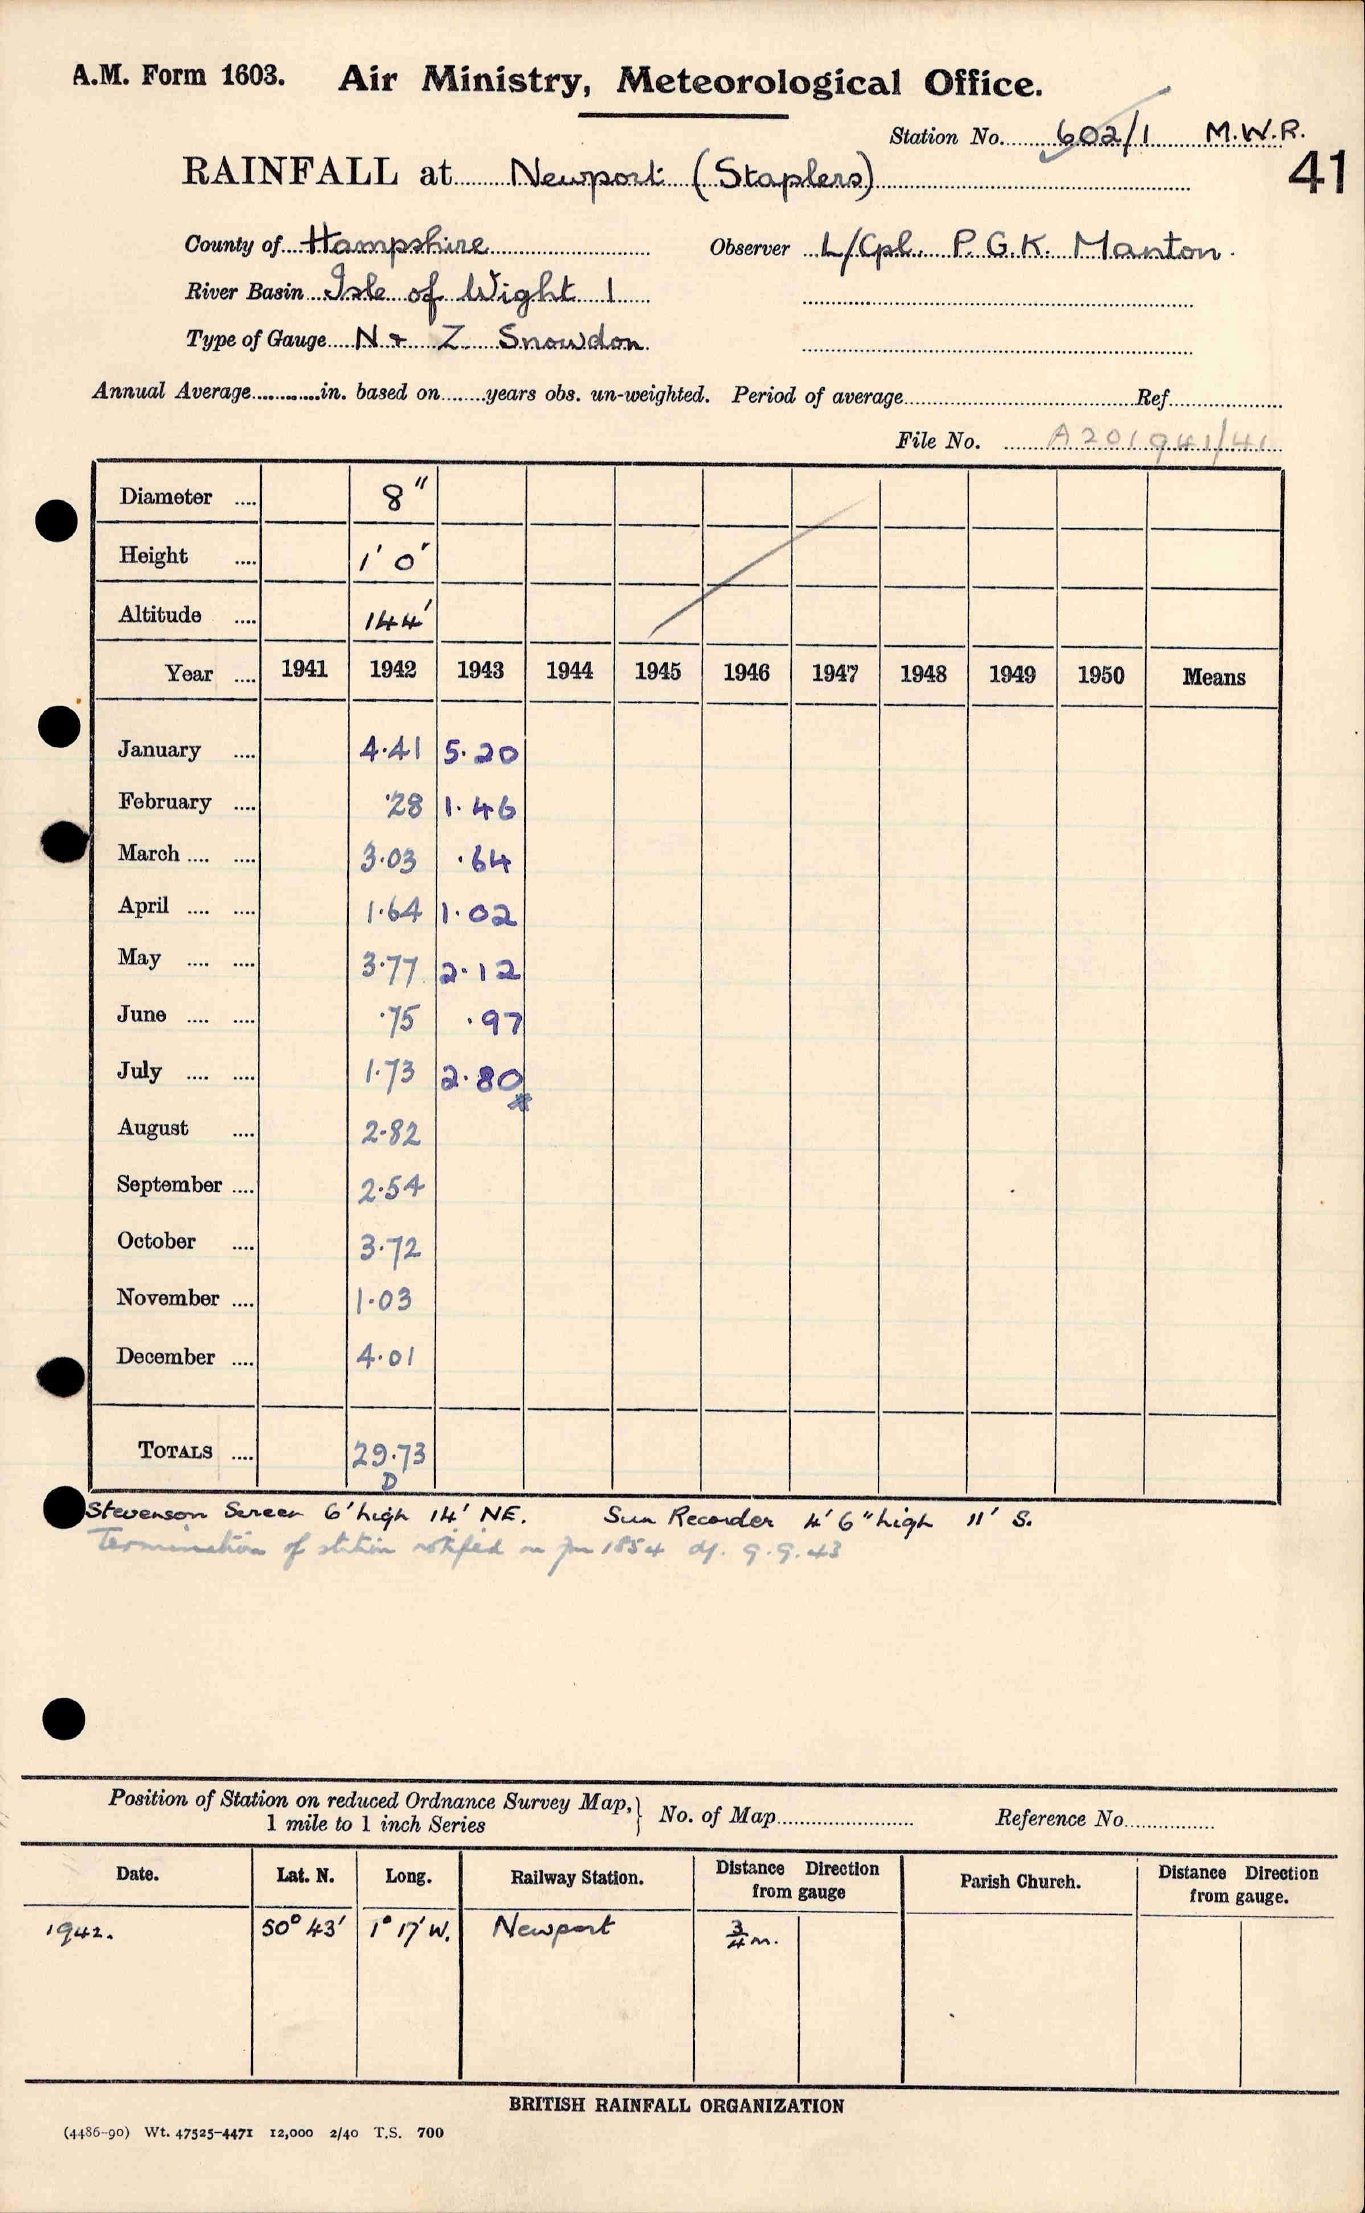 A.M. Form 1603. Air Ministry, Meteorological Office.
Station No. 602/1 M.W.R.
41
RAINFALL at Newport (Staplers)
County of Hampshire Observer L/Cpl. P.G.K. Manton.
River Basin Isle of Wight 1
Type of Gauge N & Z Snowdon
Annual Average............in. based on........years obs. un-weighted. Period of average.................... Ref....................
File No. A201941/41
Diameter .... 8"
Height .... 1' 0"
Altitude .... 144'
Year .... 1941 1942 1943 1944 1945 1946 1947 1948 1949 1950 Means
January .... 4.41 5.20
February .... .28 1.46
March .... .... 3.03 .64
April .... .... 1.64 1.02
May .... .... 3.77 2.12
June .... .... .75 .97
July .... .... 1.73 2.80
*
August .... 2.82
September .... 2.54
October .... 3.72
November .... 1.03
December .... 4.01
TOTALS .... 29.73
D
Stevenson Screen 6' high 14' NE. Sun Recorder 4' 6" high 11' S.
Termination of station notified on 1854 9.9.43
Position of Station on reduced Ordnance Survey Map, } No. of Map.................... Reference No.................
1 mile to 1 inch Series
Date. Lat. N. Long. Railway Station. Distance Direction from gauge Parish Church. Distance Direction from gauge.
1942. 50° 43' 1° 17' W. Newport 3/4 m.
BRITISH RAINFALL ORGANIZATION
(4486-90) Wt. 47525-4471 12,000 2/40 T.S. 700